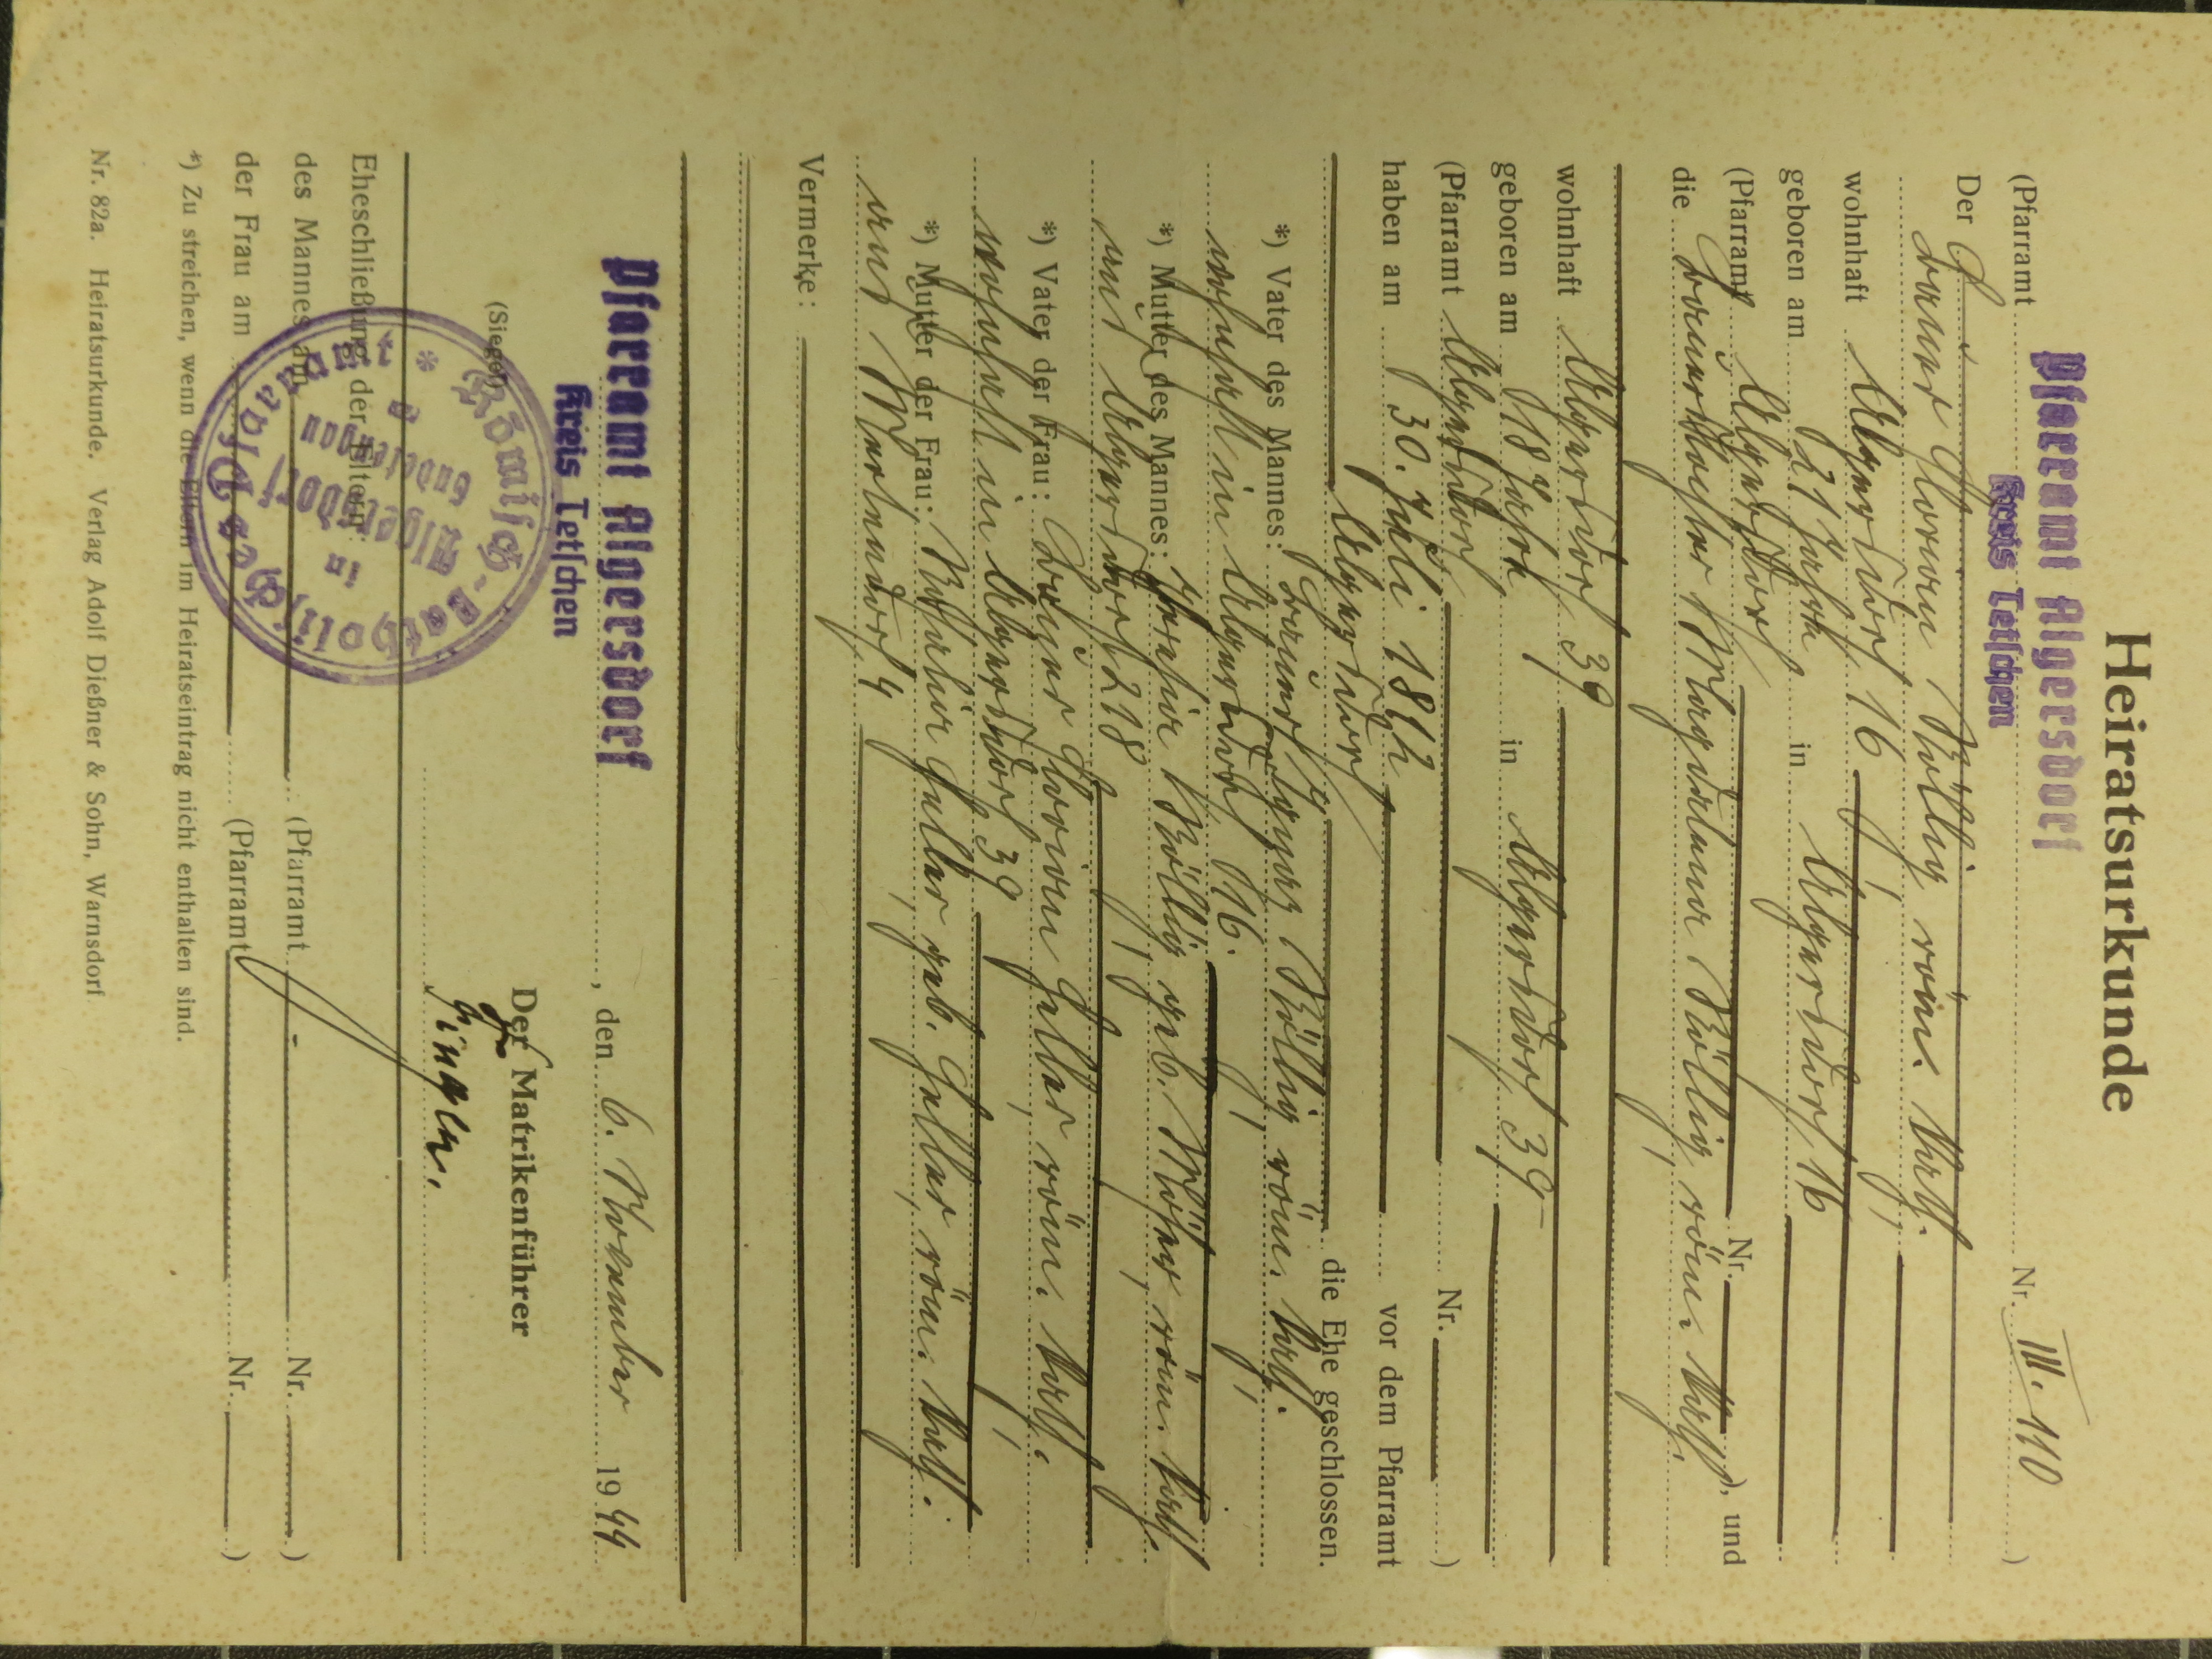 Heiratsurkunde
Pfarramt Algersdorf
(Pfarramt Nr. III. 110 )
Kreis Tetschen
Der
Bauer Florian Röllig, röm. kath.,
wohnhaft Algersdorf 16
geboren am 21 Jahre in Algersdorf 16
(Pfarramt Algersdorf Nr. ), und
die Bauerstochter Magdalena Röllig, röm. kath.
wohnhaft Algersdorf 39
geboren am 18 Jahre in Algersdorf 39
(Pfarramt Algersdorf Nr. )
haben am 30. Juli 1812 vor dem Pfarramt
Algersdorf die Ehe geschlossen.
*) Vater des Mannes: Bauer Ignaz Röllig, röm. kath.,
wohnhaft in Algersdorf 16.
*) Mutter des Mannes: Theresia Röllig, geb. Möser, röm. kath.
aus Algersdorf 218
*) Vater der Frau: Bauer Florian Heller, röm. kath.,
wohnhaft in Algersdorf 39
*) Mutter der Frau: Rosalia Heller, geb. Heller, röm. kath.
aus Mertendorf 4
Vermerke:
Pfarramt Algersdorf , den 6. November 1944
Kreis Tetschen
Der Matrikenführer
(Siegel)
Römisch-katholisches Pfarramt
in
Algersdorf
Sudetengau
Eheschließung der Eltern:
des Mannes am (Pfarramt - Nr. )
der Frau am (Pfarramt Nr. )
*) Zu streichen, wenn die Eltern im Heiratseintrag nicht enthalten sind.
Nr. 82a. Heiratsurkunde. Verlag Adolf Dießner & Sohn, Warnsdorf